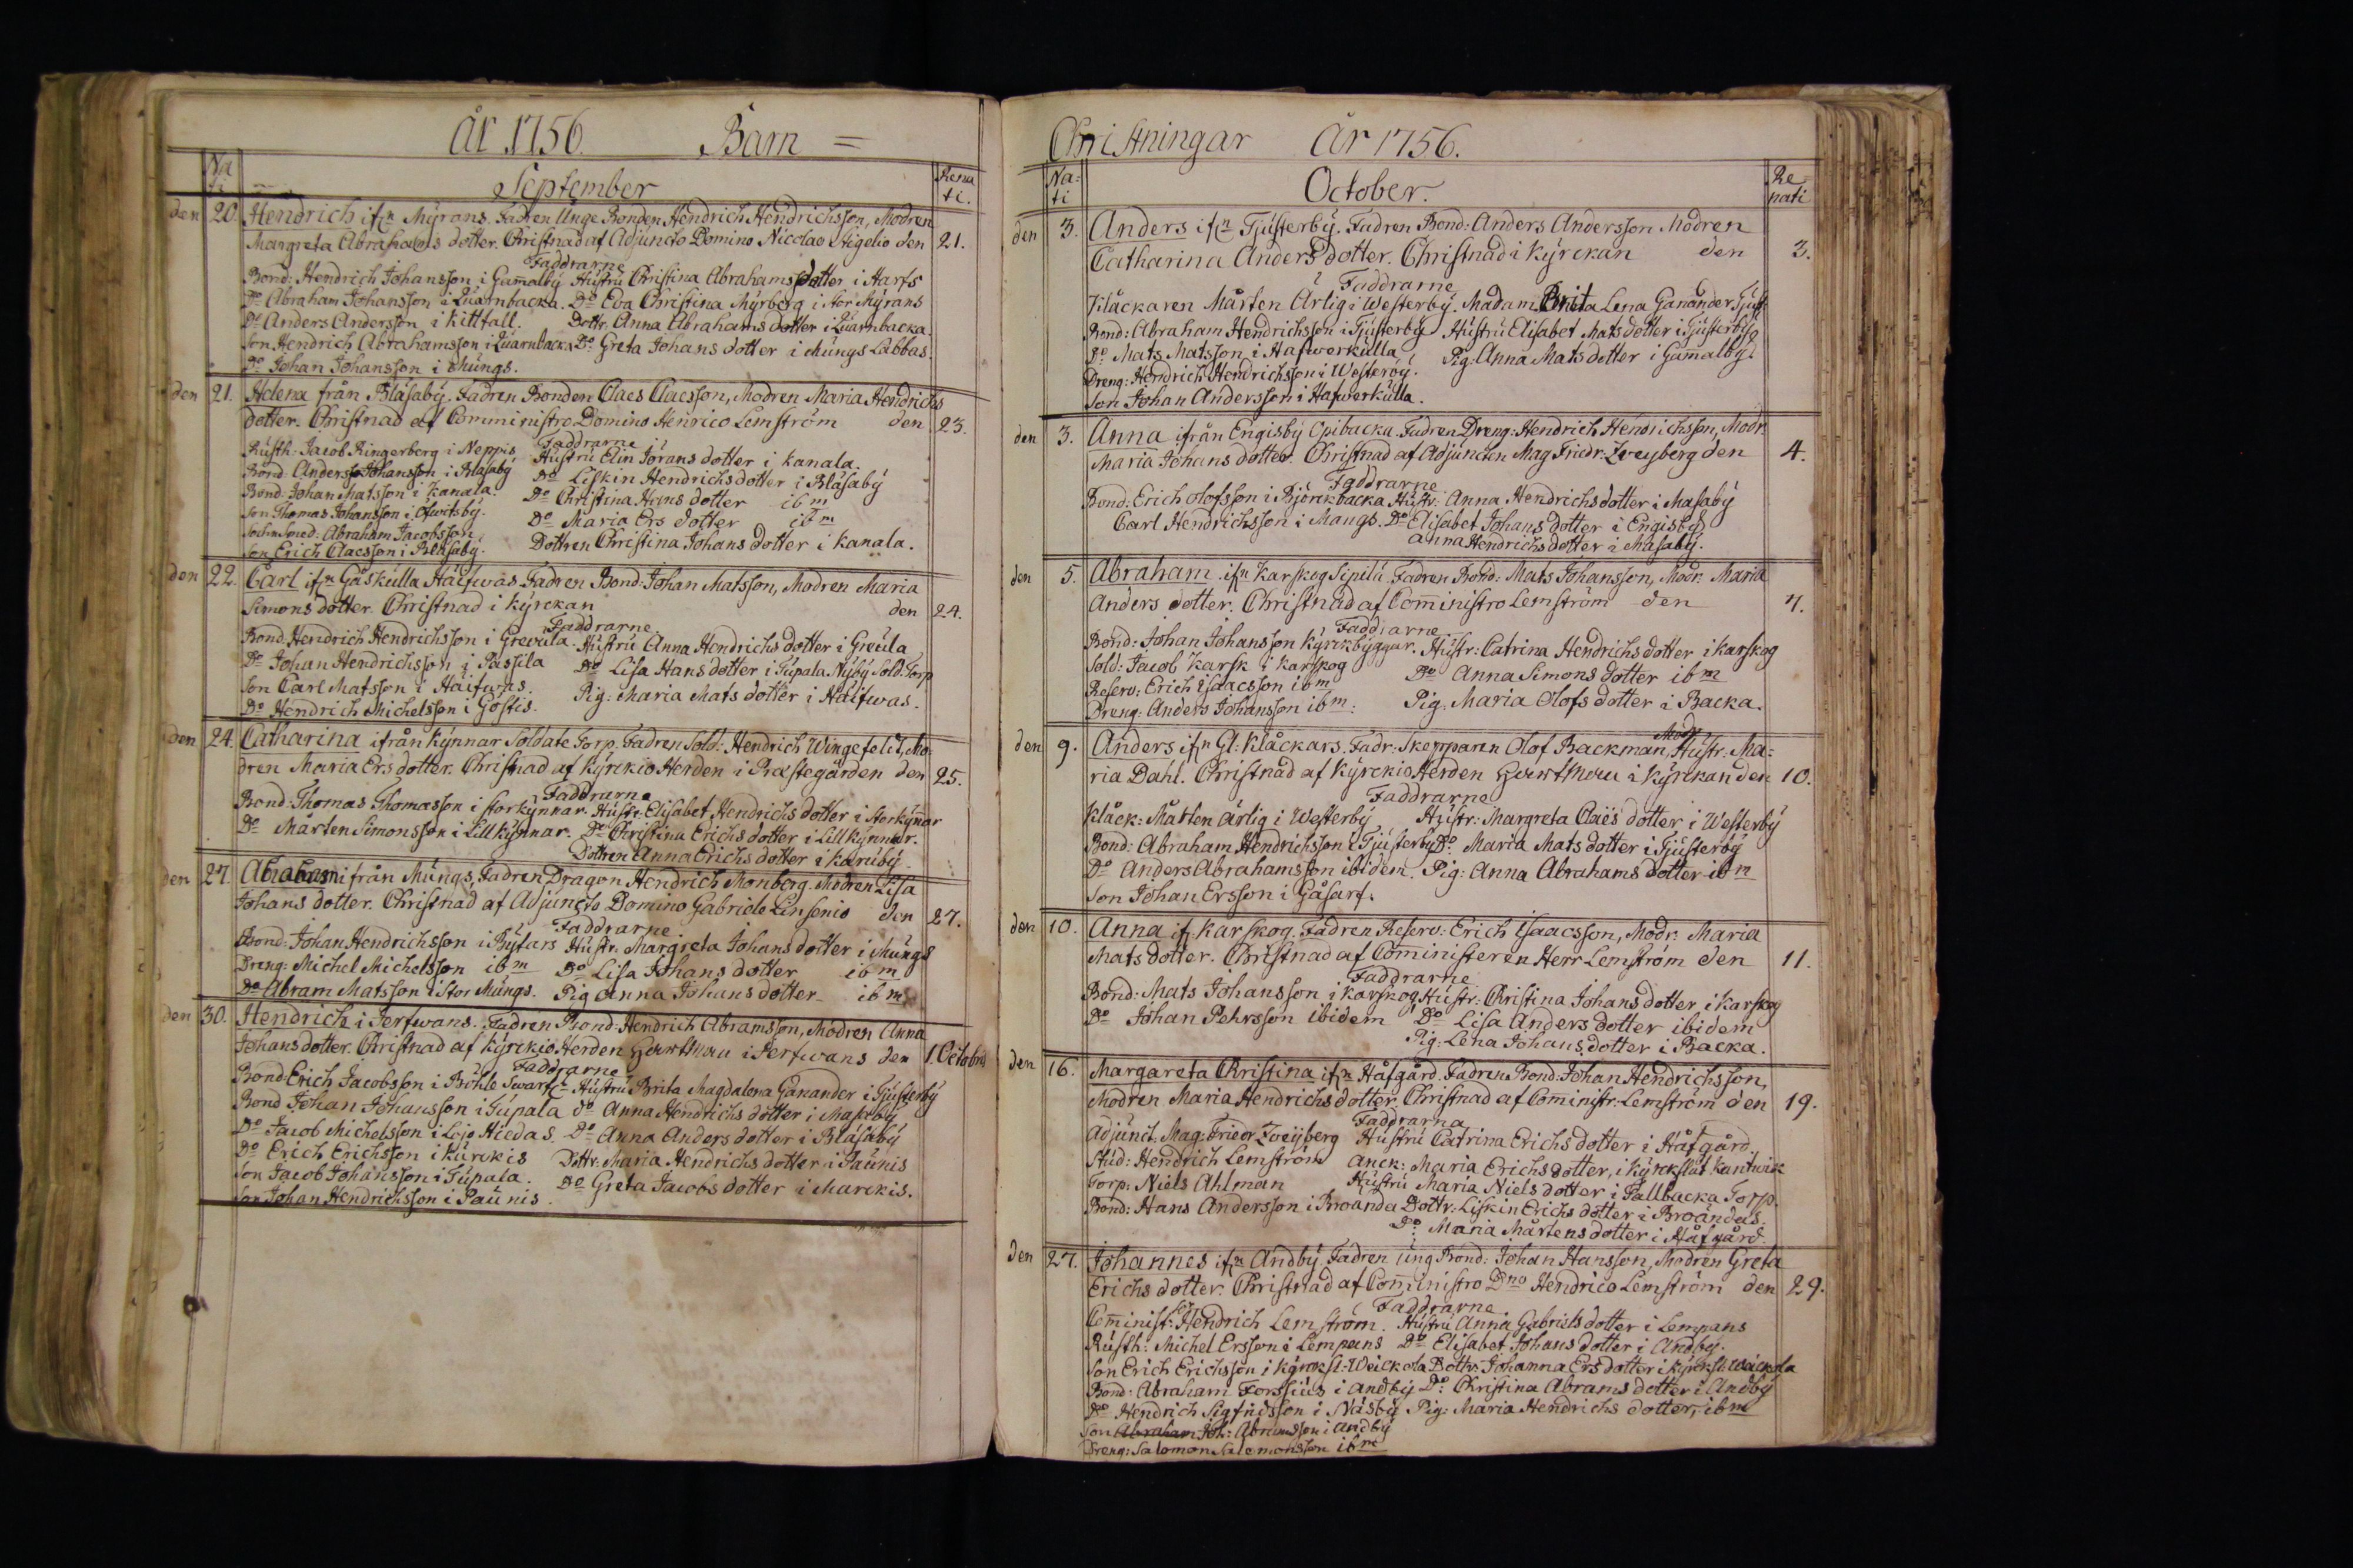 År 1756. Barn =
Na
ti
September
Rena
ti.
den 20. Hendrich ifrn Mÿrans. Fadren Unge Bonden Hendrich Hendrichsson, Modren
Margreta Abrahams dotter. Christnad af Adjuncto Domino Nicolao Stigelio den 21.
Faddrarne
Bond: Hendrich Johansson i Gamalbÿ Hustru Christina Abrahams dotter i Harfs
Do Abraham Johansson i Quarnbacka. Do Eva Christina Mÿrberg i stor Mÿrans
Do Anders Andersson i Kittfall. Dottr. Anna Abrahams dotter i Quarnbacka.
Son Hendrich Abrahamsson i Quarnbacka Do Greta Johans dotter i Mungs Labbas.
Do Johan Johansson i Mungs.
den 21. Helena från Blåsabÿ. Fadren Bonden Claes Claesson, Modren Maria Hendrichs
dotter. Christnad af Comministro Domino Henrico Lemström den 23.
Faddrarne
Rusth: Jacob Ringerberg i Neppis Hustru Elin Jörans dotter i Kanala.
Bond: Anders Johansson i Blåsabÿ Do Liskin Hendrichs dotter i Blåsabÿ
Bond: Johan Matsson i Kanala. Do Christina Hans dotter ibm
Son Thomas Johansson i Ofwitsbÿ. Do Maria Ers dotter ibm
Sochn Smed: Abraham Jacobsson.
Son Erich Claesson i Blåsabÿ. Dottren Christina Johans dotter i Kanala.
den 22. Carl ifrn Gåskulla Haifwas Fadren Bond: Johan Matsson, Modren Maria
Simons dotter. Christnad i Kÿrckan den 24.
Faddrarne
Bond. Hendrich Hendrichsson i Grevula. Hustru Anna Hendrichs dotter i Greula
Do Johan Hendrichsson i Passila Do Lisa Hans dotter i Tupala Nÿbÿ Sold: Torp
Son Carl Matsson i Haifwas. Pig: Maria Mats dotter i Haifwas.
Do Hendrich Michelsson i Gostis.
den 24. Catharina ifrån Kÿnnar Soldate Torp. Fadren Sold: Hendrich Wingefelt, Mo-
dren Maria Ers dotter. Christnad af KÿrckioHerden i Præstegården den 25.
Faddrarne
Bond: Thomas Thomasson i storkÿnnar. Hustr: Elisabet Hendrichs dotter i storkÿnnar
Do Mårten Simonsson i Lillkÿnnar. Do Christina Erichs dotter i Lillkÿnnar.
Dottren Anna Erichs dotter i Karubÿ.
den 27. Abraham ifrån Mungs, Fadren Dragon Hendrich Monberg. Modren Lisa
Johans dotter. Christnad af Adjuncto Domino Gabriele Linsenio den 27.
Faddrarne.
Bond: Johan Hendrichsson i Bÿtars Hustr: Margreta Johans dotter i Mungs
Dreng: Michel Michelsson ibm Do Lisa Johans dotter ibm
Do Abram Matsson i Stor Mungs. Pig Anna Johans dotter ibm
den 30. Hendrich i Jerfwans. Fadren Bond: Hendrich Abramsson, Modren Anna
Johans dotter. Christnad af KÿrckioHerden i Jerfwans den 1. Octobris
Faddrarne
Bond: Erich Jacobsson i Böhle Swarts Hustru Brita Magdalena Ganander i Gjusterbÿ
Bond Johan Johansson i Tupala do Anna Hendrichs dotter i Masabÿ
Do Jacob Michelsson i Lojo Hiedas. Do Anna Anders dotter i Blåsabÿ
Do Erich Erichsson i Kurckis Dottr: Maria Hendrichs dotter i Paunis
Son Jacob Johansson i Tupala. Do Greta Jacobs dotter i Marckis.
Son Johan Hendrichsson i Paunis.
Christningar År 1756.
Na=
ti
October.
Re
nati
den 3. Anders ifrn Tjusterbÿ. Fadren Bond: Anders Andersson Modren
Catharina Anders dotter. Christnad i Kÿrckan den 3.
Faddrarne
Klåckaren Mårten Ärlig i Westerbÿ. Madam Brita Lena Ganander. Tjust
Bond: Abraham Hendrichsson i Tjusterbÿ Hustru Elisabet Mats dotter i Tjusterbÿ
Do Mats Matsson i Hafwerkulla Pig: Anna Mats dotter i Gamalbÿ
Dreng: Hendrich Hendrichsson i Westerbÿ.
Son Johan Andersson i Hafwerkulla.
den 3. Anna ifrån Engisbÿ Opibacka. Fadren Dreng: Hendrich Hendrichsson, Modr.
Maria Johans dotter. Christnad af Adjuncten Mag Friedr: Zveyberg den 4.
Faddrarne
Bond: Erich Olofsson i Björckbacka Hustr: Anna Hendrichs dotter i Masabÿ
Carl Hendrichsson i Mangs. Do Elisabet Johans dotter i Engisbÿ
Anna Hendrichs dotter i Masabÿ.
den 5. Abraham. ifrn Karskog Sipilu. Fadren Bond: Mats Johansson, Modr. Maria
Anders dotter. Christnad af Comministro Lemström den 7.
Faddrarne
Bond: Johan Johansson Kÿrckbÿggar. Hustr: Catrina Hendrichs dotter i Karskog
Sold: Jacob Karsk i Karskog Do Anna Simons dotter ibm
Reserv: Erich Isaacsson ibm Pig. Maria Olofs dotter i Backa.
Dreng: Anders Johansson ibm.
den 9. Anders ifrn Gl: Klåckars. Fadr: Skepparen Olof Backman, Modr Hustr: Ma=
ria Dahl. Christnad af KÿrckioHerden i Kÿrckan den 10.
Faddrarne
Klåck: Mårten Ärlig i Westerbÿ Hustr: Margreta Claës dotter i Westerbÿ
Bond: Abraham Hendrichsson i Tjusterbÿ Do: Maria Mats dotter i Tjusterbÿ
Do Anders Abrahamsson ibidem. Pig: Anna Abrahams dotter ibm
Son Johan Ersson i Gåsarf.
den 10. Anna ifr. Karskog. Fadren Reserv: Erich Isaacsson, Modr: Maria
Mats dotter. Christnad af Comministeren Herr Lemström den 11.
Faddrarne
Bond: Mats Johansson i Karskog Hustr: Christina Johans dotter i Karskog
Do Johan Pehrsson ibidem Do Lisa Anders dotter ibidem
Pig: Lena Johans dotter i Backa.
den 16. Margareta Christina ifrn Håfgård. Fadren Bond: Johan Hendrichsson,
Modren Maria Hendrichs dotter. Christnad af Comministr: Lemström den 19.
Faddrarna
Adjunct. Mag: Friedr Zveÿberg Hustru Catrina Erichs dotter i Håfgård.
Stud: Hendrich Lemström Anck: Maria Erichs dotter, i Kÿrckslät Kantwik
Torp: Niels Ahlman Hustru Maria Niels dotter i Fallbacka Torp.
Bond: Hans Andersson i Broända Dottr: Liskin Erichs dotter i Broändas.
Do Maria Mårtens dotter i Håfgård.
den 27. Johannes ifrn Andbÿ. Fadren ung Bond: Johan Hansson, Modren Greta
Erichs dotter. Christnad af Comministro Dno Hendrico Lemström den 29.
Faddrarne.
Comminist: Hendrich Lemström. Hustru Anna Gabriels dotter i Lempans
Rusth: Michel Ersson i Lempans Do Elisabet Johans dotter i Andbÿ.
Son Erich Erichsson i Kÿrcksl: Weickola Dottr: Johanna Ers dotter i Kÿrcksl: Weickola
Bond: Abraham Forssius i Andbÿ Do: Christina Abrams dotter i Andbÿ
Do Hendrich Sigfridsson i Näsbÿ Pig: Maria Hendrichs dotter, ibm
Son Abraham Joh: Abramsson i Andbÿ
Dreng: Salomon Salomonsson ibm